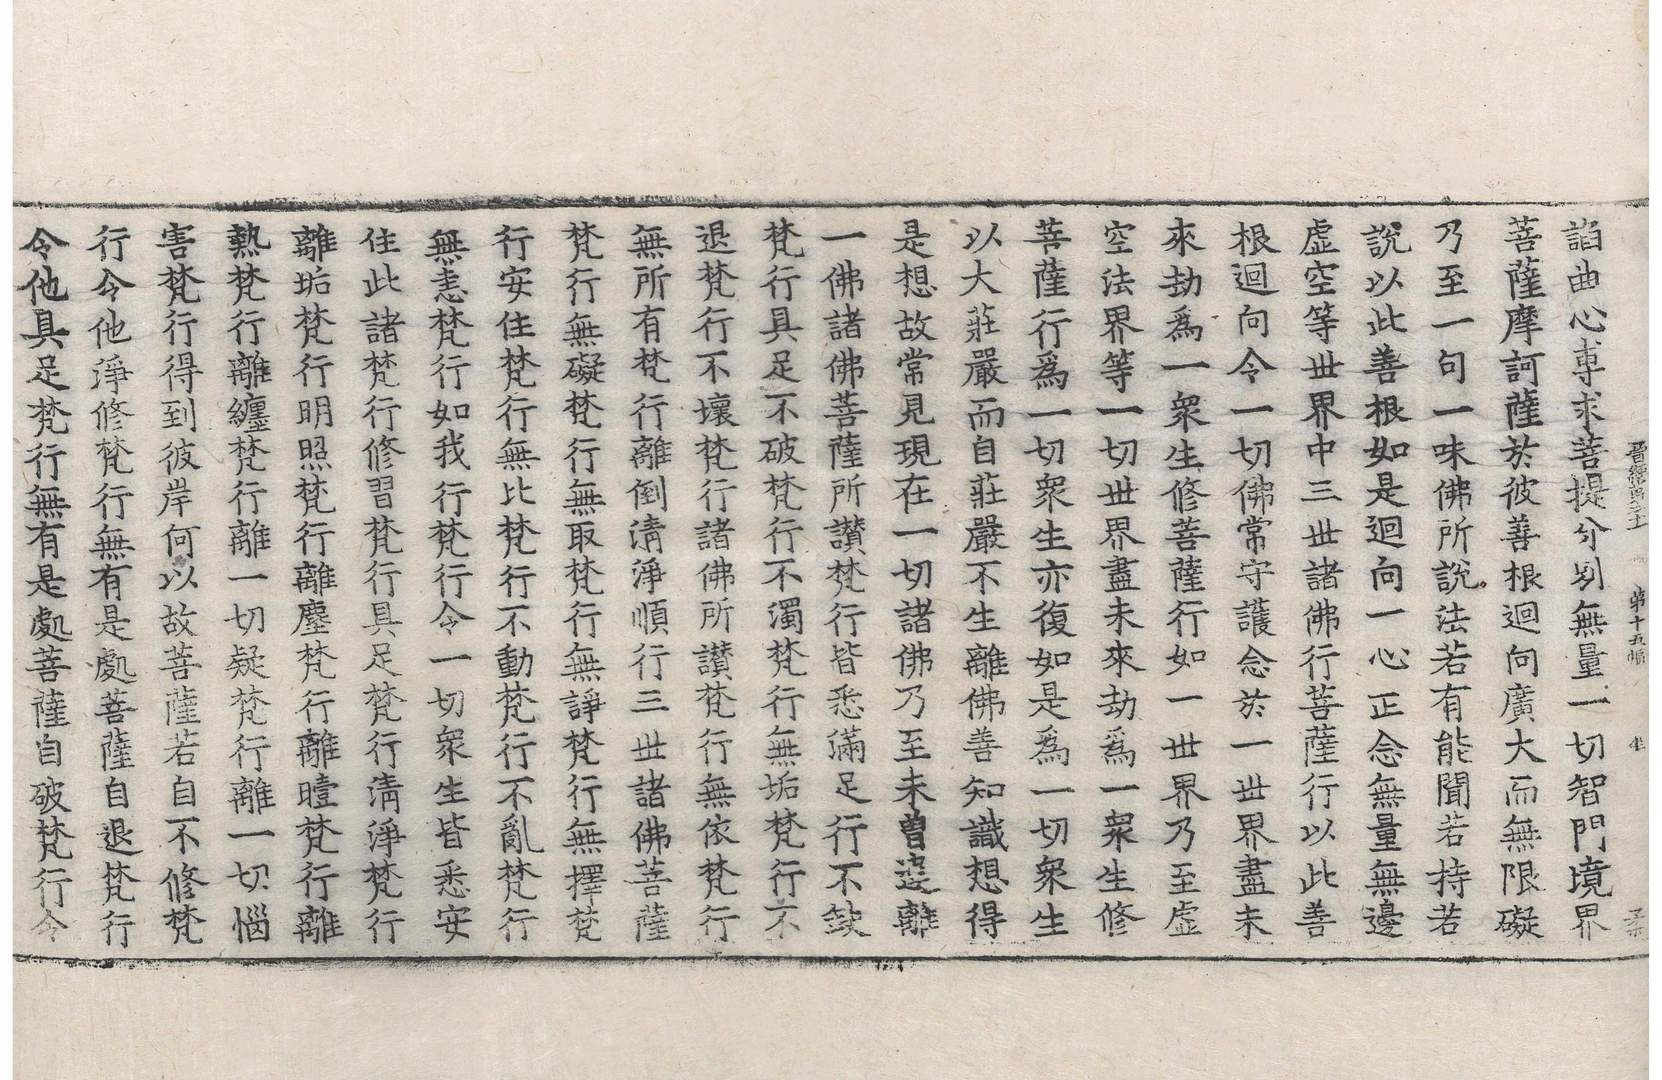 晋經第二十 第十五幅 坐
諂曲心專求菩提分別無量一切智門境界
菩薩摩訶薩於彼善根迴向廣大而無限礙
乃至一句一味佛所說法若有能聞若持若
說以此善根如是迴向一心正念無量無邊
虛空等世界中三世諸佛行菩薩行以此善
根迴向令一切佛常守護念於一世界盡未
來劫為一衆生修菩薩行如一世界乃至虛
空法界等一切世界盡未來劫為一衆生修
菩薩行為一切衆生亦復如是為一切衆生
以大莊嚴而自莊嚴不生離佛善知識想得
是想故常見現在一切諸佛乃至未曾遠離
一佛諸佛菩薩所讃梵行皆悉滿足行不缺
梵行具足不破梵行不濁梵行無垢梵行不
退梵行不壞梵行諸佛所讃梵行無依梵行
無所有梵行離倒清淨順行三世諸佛菩薩
梵行無礙梵行無取梵行無諍梵行無擇梵
行安住梵行無比梵行不動梵行不亂梵行
無恚梵行如我行梵行令一切衆生皆悉安
住此諸梵行修習梵行具足梵行清淨梵行
離垢梵行明照梵行離塵梵行離曀梵行離
熱梵行離纏梵行離一切疑梵行離一切惱
害梵行得到彼岸何以故菩薩若自不修梵
行令他淨修梵行無有是處菩薩自退梵行
令他具足梵行無有是處菩薩自破梵行令